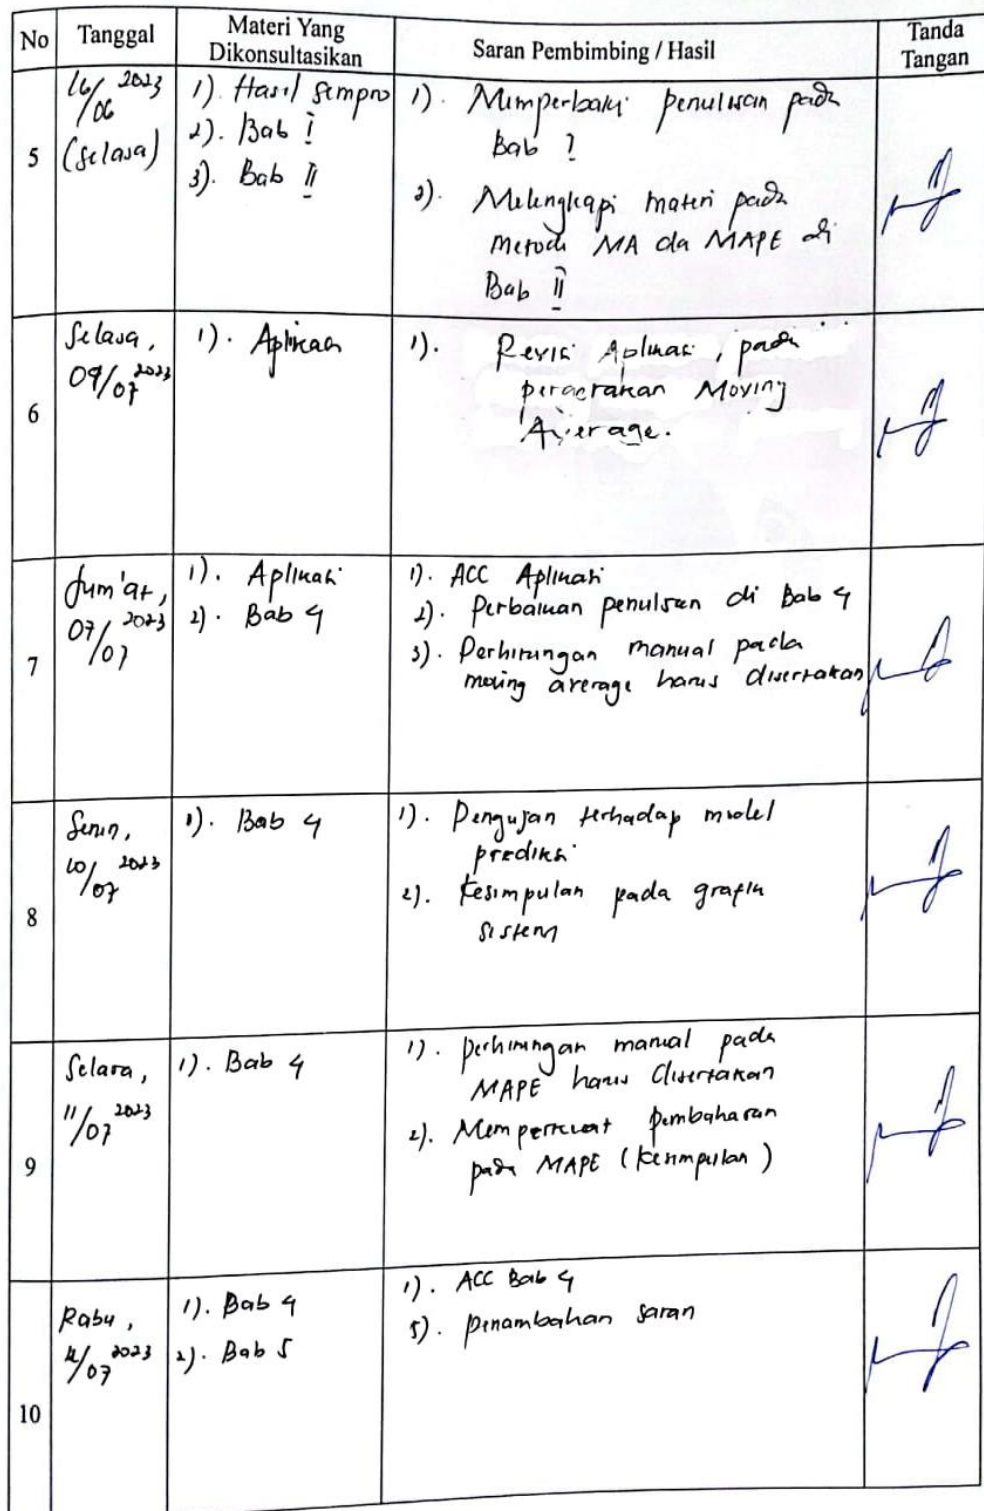 No Tanggal Materi Yang Dikonsultasikan Saran Pembimbing / Hasil Tanda Tangan
5
16/06 2023
(Selasa)
1). Hasil Sempro
2). Bab I
3). Bab II
1). Memperbaiki penulisan pada
Bab I
2). Melengkapi materi pada
metode MA da MAPE di
Bab II
6
Selasa,
04/07 2023
1). Aplikasi
1). Revisi Aplikasi, pada
peracrakan Moving
Average.
7
Jum'at,
07/07 2023
1). Aplikasi
2). Bab 4
1). ACC Aplikasi
2). Perbaikan penulisan di Bab 4
3). Perhitungan manual pada
moving average harus disertakan
8
Senin,
10/07 2023
1). Bab 4
1). Pengujian terhadap model
prediksi
2). Kesimpulan pada grafik
sistem
9
Selasa,
11/07 2023
1). Bab 4
1). Perhitungan manual pada
MAPE harus disertakan
2). Memperkuat pembahasan
pada MAPE (kesimpulan)
10
Rabu,
12/07 2023
1). Bab 4
2). Bab 5
1). ACC Bab 4
5). penambahan saran